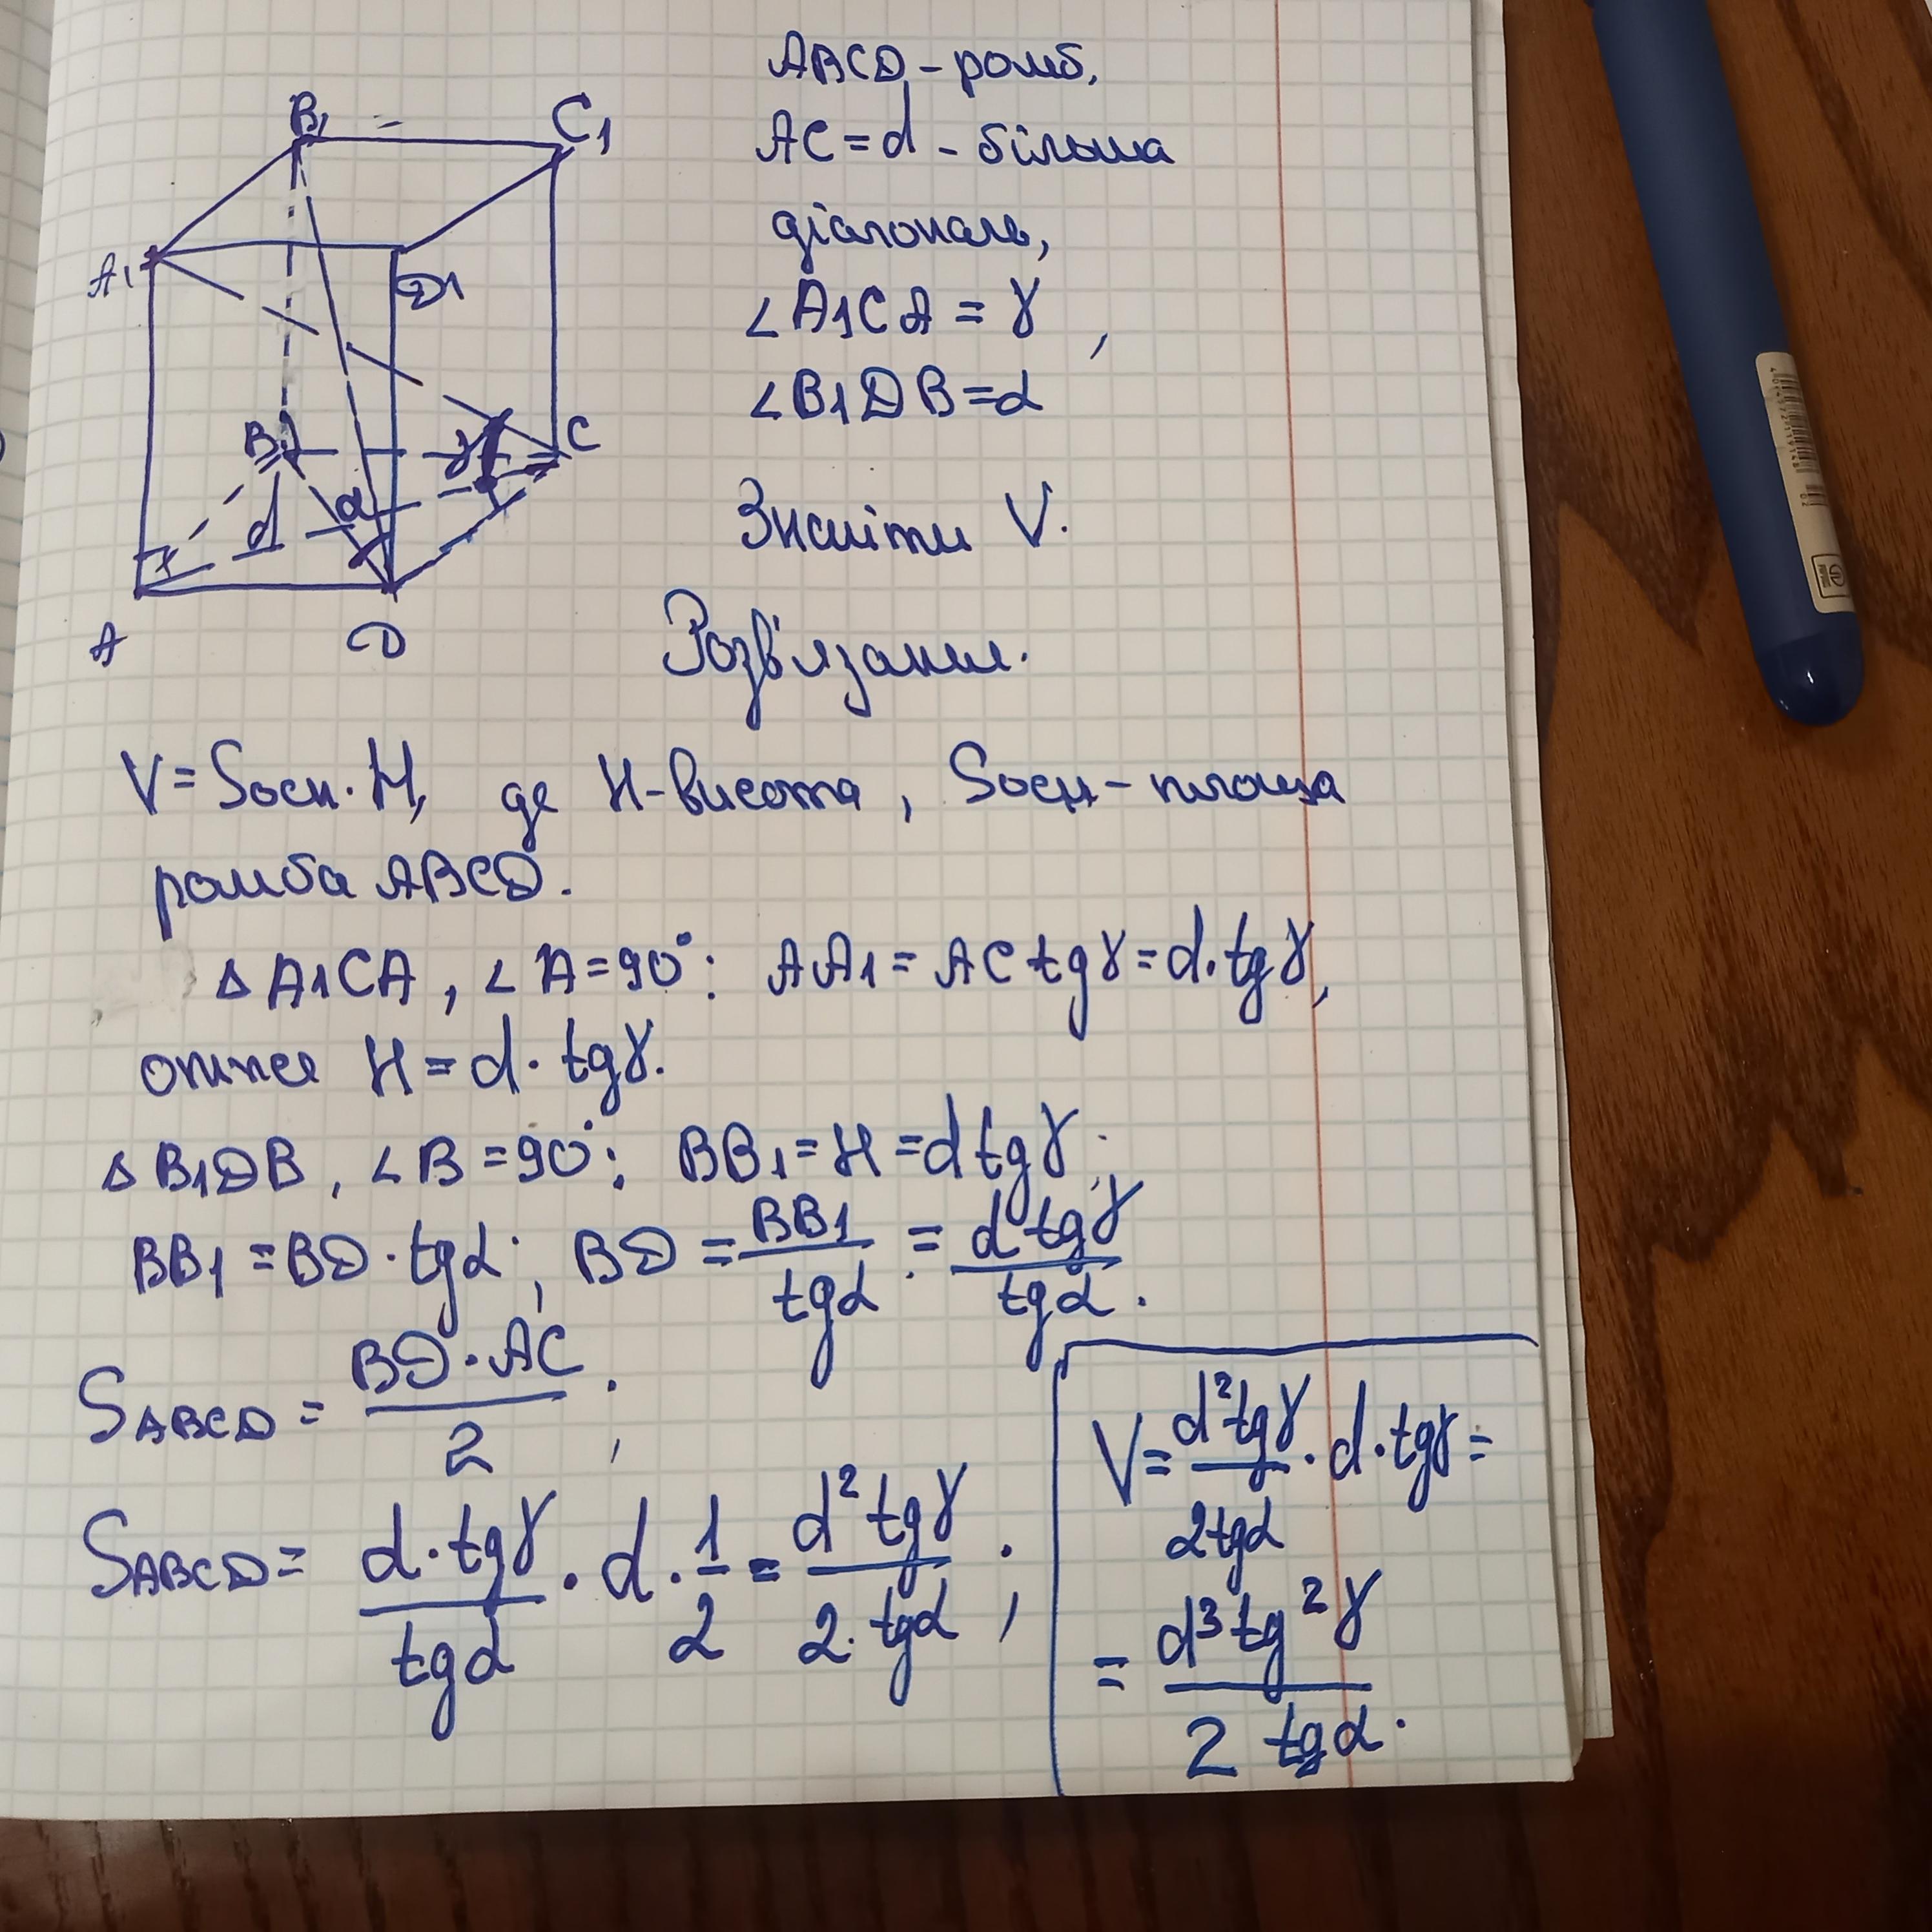 ABCD - ромб,
AC = d - більша
діагональ,
∠A1CA = γ,
∠B1DB = α
Знайти V.
B1
C1
A1
D1
B
γ
C
d
α
A
D
Розв'язання.
V = Sосн. H, де H - висота, Sосн - площа
ромба ABCD.
△ A1CA, ∠A = 90°: AA1 = AC tg γ = d · tg γ,
отже H = d · tg γ.
△ B1DB, ∠B = 90°; BB1 = H = d tg γ;
BB1 = BD · tg α; BD = BB1 / tg α = d tg γ / tg α.
SABCD = BD · AC / 2;
SABCD = d · tg γ / tg α · d · 1/2 = d² tg γ / 2 · tg α;
V = d² tg γ / 2 tg α · d · tg γ =
= d³ tg² γ / 2 tg α.